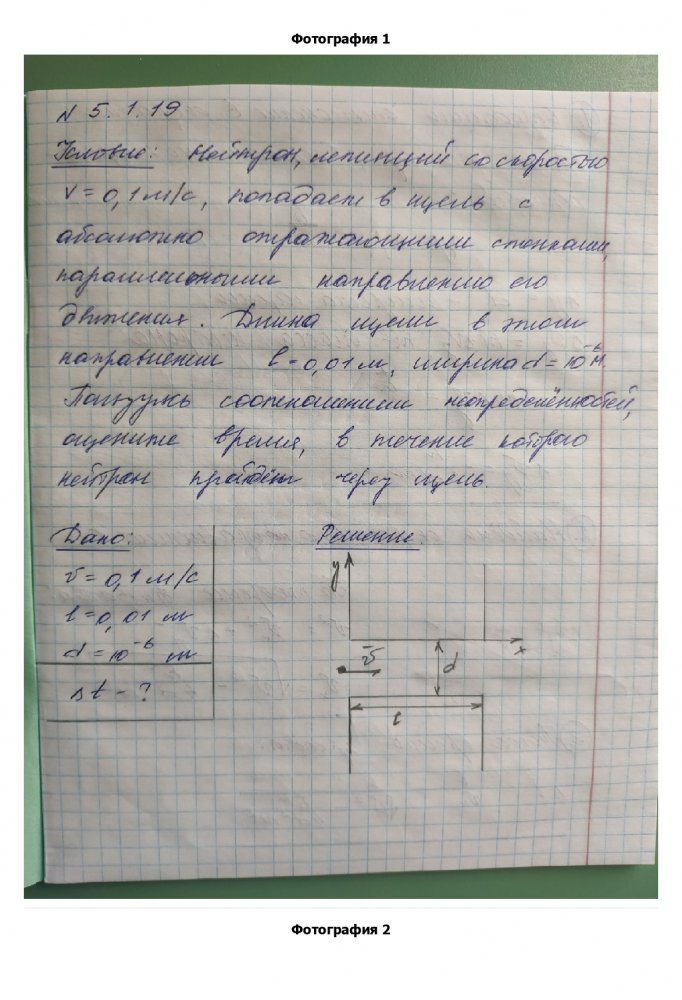 Фотография 1
N 5.1.19
Условие: Нейтрон, летящий со скоростью
v = 0,1 м/с, попадает в щель с
абсолютно отражающими стенками,
параллельными направлению его
движения. Длина щели в этом
направлении l = 0,01 м, ширина d = 10⁻⁶ м.
Пользуясь соотношением неопределённостей,
оцените время, в течение которого
нейтрон пройдёт через щель.
Дано:
v = 0,1 м/с
l = 0,01 м
d = 10⁻⁶ м
Δt - ?
Решение.
y
x
v
d
l
Фотография 2